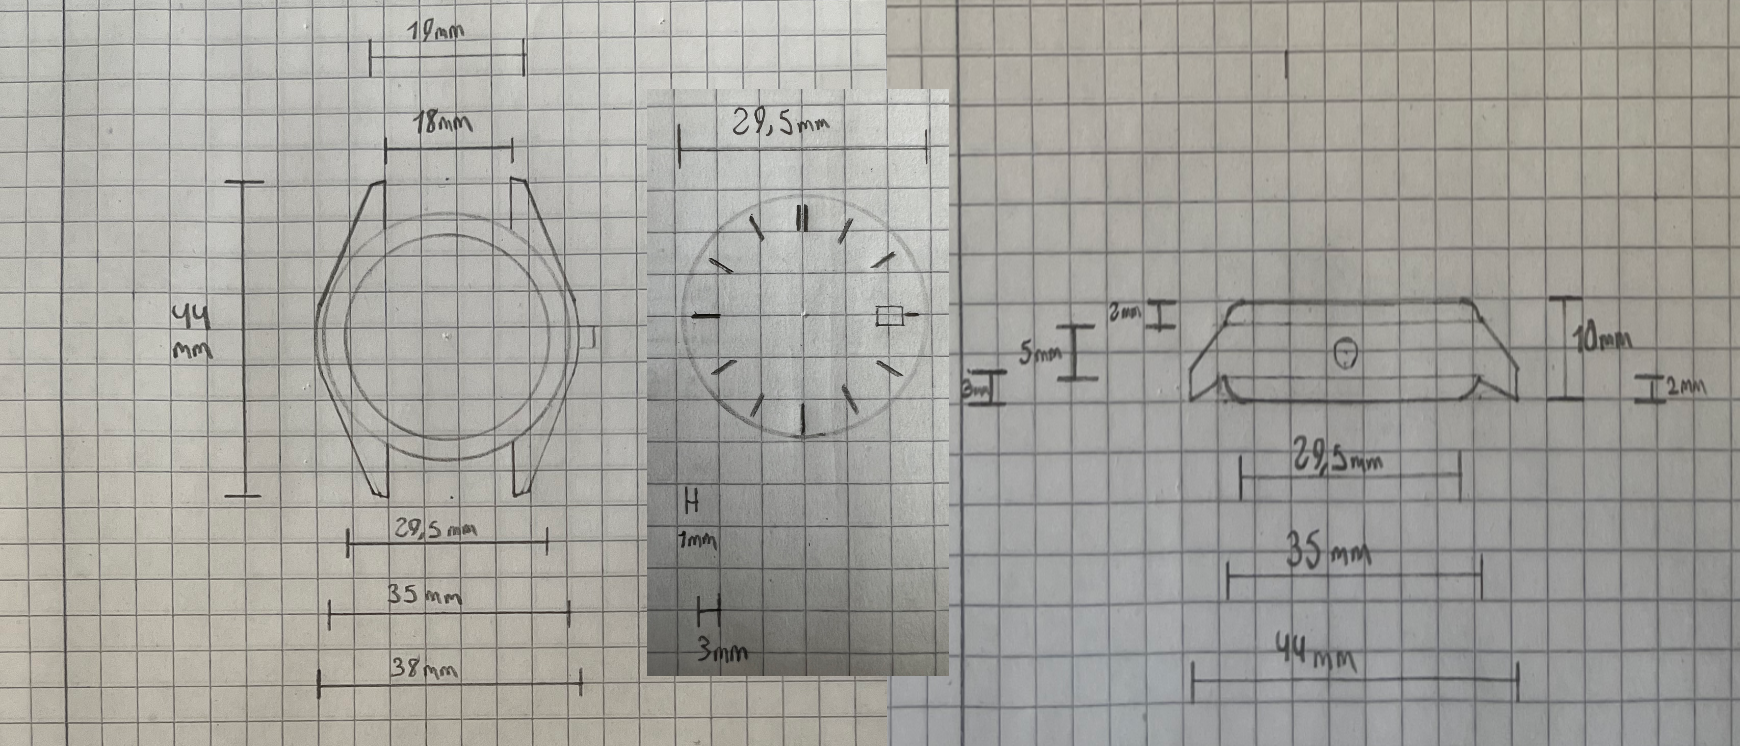 19mm
18mm
44
mm
29,5mm
35mm
38mm
29,5mm
1mm
3mm
2mm
5mm
3mm
10mm
2mm
29,5mm
35mm
44mm